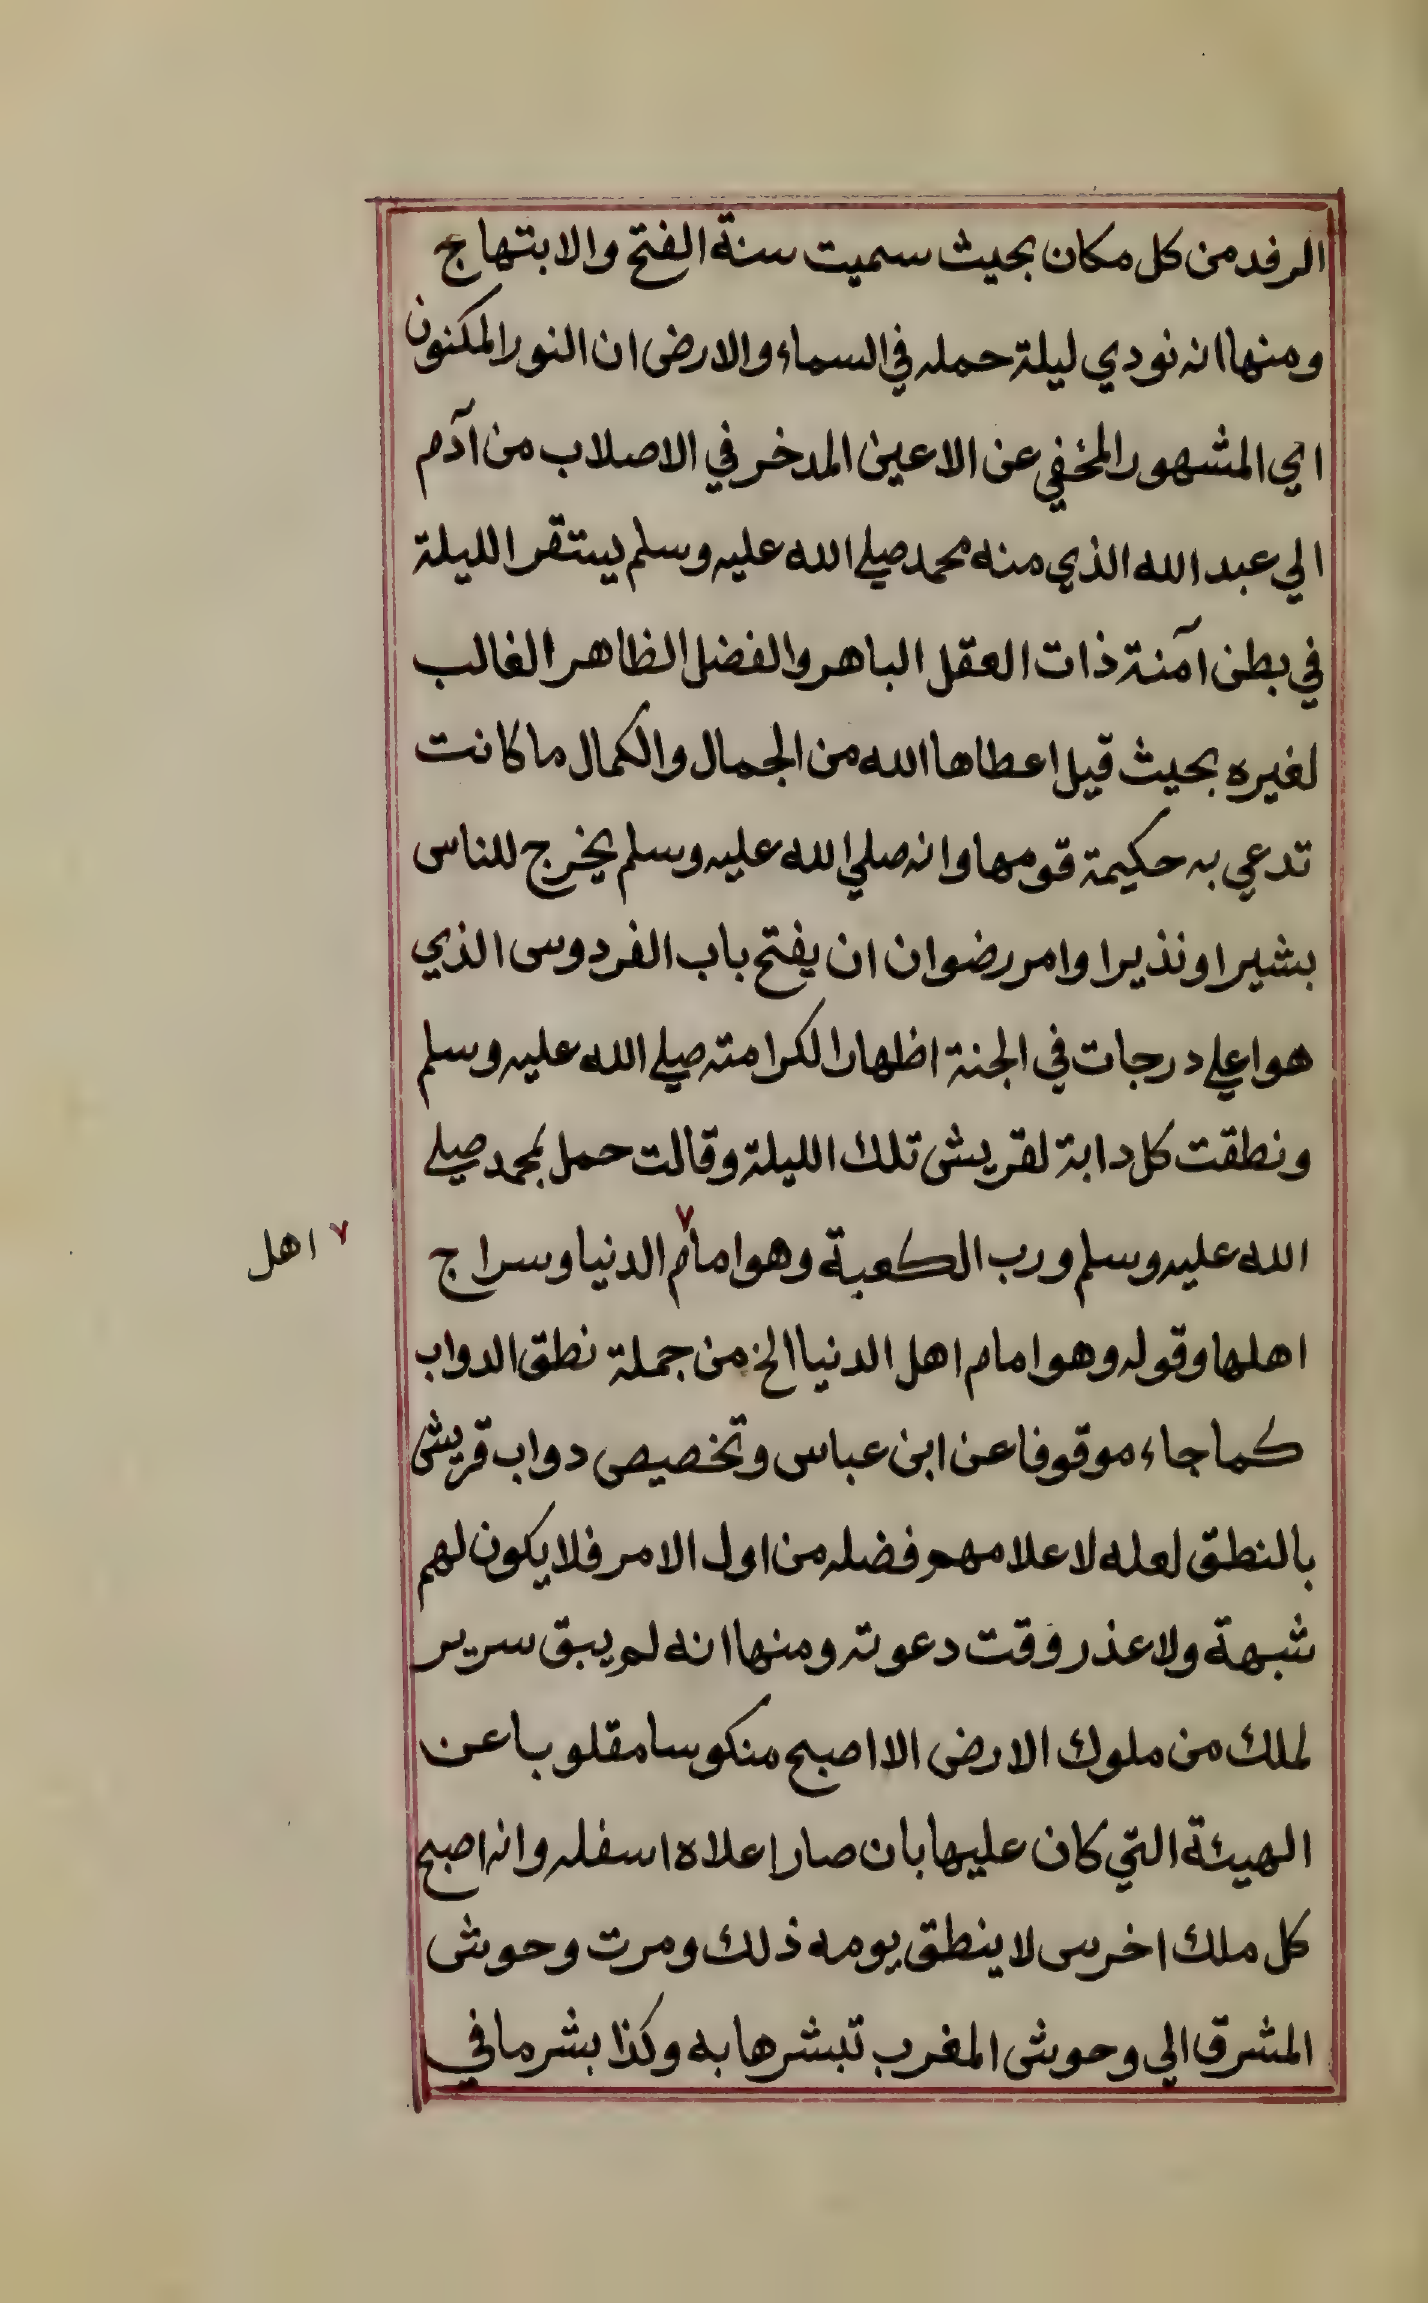 الرفد من كل مكان بحيث سميت سنة الفتح والابتهاج
ومنها انه نودي ليلة حمله في السماء والارض ان النور المكنون
اي المشهور المخفي عن الاعين المدخر في الاصلاب من آدم
الي عبد الله الذي منه محمد صلي الله عليه وسلم يستقر الليلة
في بطن آمنة ذات العقل الباهر والفضل الظاهر الغالب
لغيره بحيث قيل اعطاها الله من الجمال والكمال ما كانت
تدعي به حكيمة قومها وانه صلي الله عليه وسلم يخرج للناس
بشيرا ونذيرا وامر رضوان ان يفتح باب الفردوس الذي
هو اعلي درجات في الجنة اظهارا لكرامته صلي الله عليه وسلم
ونطقت كل دابة لقريش تلك الليلة وقالت حمل بمحمد صلي
الله عليه وسلم ورب الكعبة وهو امام ٧ الدنيا وسراج
٧ اهل
اهلها وقوله وهو امام اهل الدنيا الخ من جملة نطق الدواب
كما جاء موقوفا عن ابن عباس وتخصيص دواب قريش
بالنطق لعله لاعلامهم فضله من اول الامر فلا يكون لهم
شبهة ولا عذر وقت دعوته ومنها انه لم يبق سرير
لملك من ملوك الارض الا اصبح منكوسا مقلوبا عن
الهيئة التي كان عليها بان صار اعلاه اسفله وانه اصبح
كل ملك اخرس لا ينطق يومه ذلك ومرت وحوش
المشرق الي وحوش المغرب تبشرها به وكذا بشر ما في